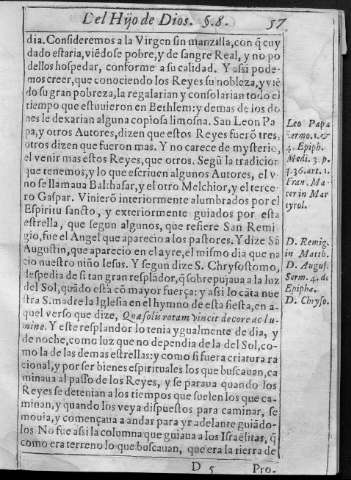 Del Hijo de Dios. §.8. 57
dia. Consideremos a la Virgen sin manzilla, con q̃ cuy
dado estaria, viẽdose pobre, y de sangre Real, y no po
dellos hospedar, conforme a su calidad. Y assi pode-
mos creer, que conociendo los Reyes su nobleza, y viẽ
do su gran pobreza, la regalarian y consolarian todo el
tiempo que estuuieron en Bethlem; y demas de los do
nes le dexarian alguna copiosa limosna. San Leon Pa
pa, y otros Autores, dizen que estos Reyes fuerõ tres,
otros dizen que fueron mas. Y no carece de mysterio,
el venir mas estos Reyes, que otros. Segũ la tradicion
que tenemos, y lo que escriuen algunos Autores, el v-
no se llamaua Balthasar, y el otro Melchior, y el terce-
ro Gaspar. Vinierõ interiormente alumbrados por el
Espiritu sancto, y exteriormente guiados por esta
estrella, que segun algunos, que refiere San Remi
gio, fue el Angel que aparecio a los pastores. Y dize Sã
Augustin, que aparecio en el ayre, el mismo dia que na
cio nuestro niño Iesus. Y segun dize S. Chrysostomo,
despedia de si tan gran resplãdor, q̃ sobrepujaua a la luz
del Sol, quãdo està cõ mayor fuerça: y assi lo cãta nue
stra S. madre la Iglesia en el hymno de esta fiesta, en a-
quel verso que dize, Quæ solis rotam vincit decore ac lu-
mine. Y este resplandor lo tenia ygualmente de dia, y
de noche, como luz que no dependia de la del Sol, co-
mo la de las demas estrellas: y como si fuera criatura ra
cional, y por ser bienes espirituales los que buscauan, ca
minaua al passo de los Reyes, y se paraua quando los
Reyes se detenian a los tiempos que suelen los que ca-
minan, y quando los veya dispuestos para caminar, se
mouia, y començaua a andar para yr adelante guiãdo-
los. No fue assi la columna que guiaua a los Israelitas, q̃
como era terreno lo que buscauan, que era la tierra de
D 5 Pro.
Leo Papa
sermo. 1. &
4. Epiph.
Medi. 3. p.
q. 36. art. 1.
Fran. Ma-
ter in Mar
tyrol.
D. Remig.
in Matth.
D. Augus.
Serm. 4. de
Epipha.
D. Chryso.